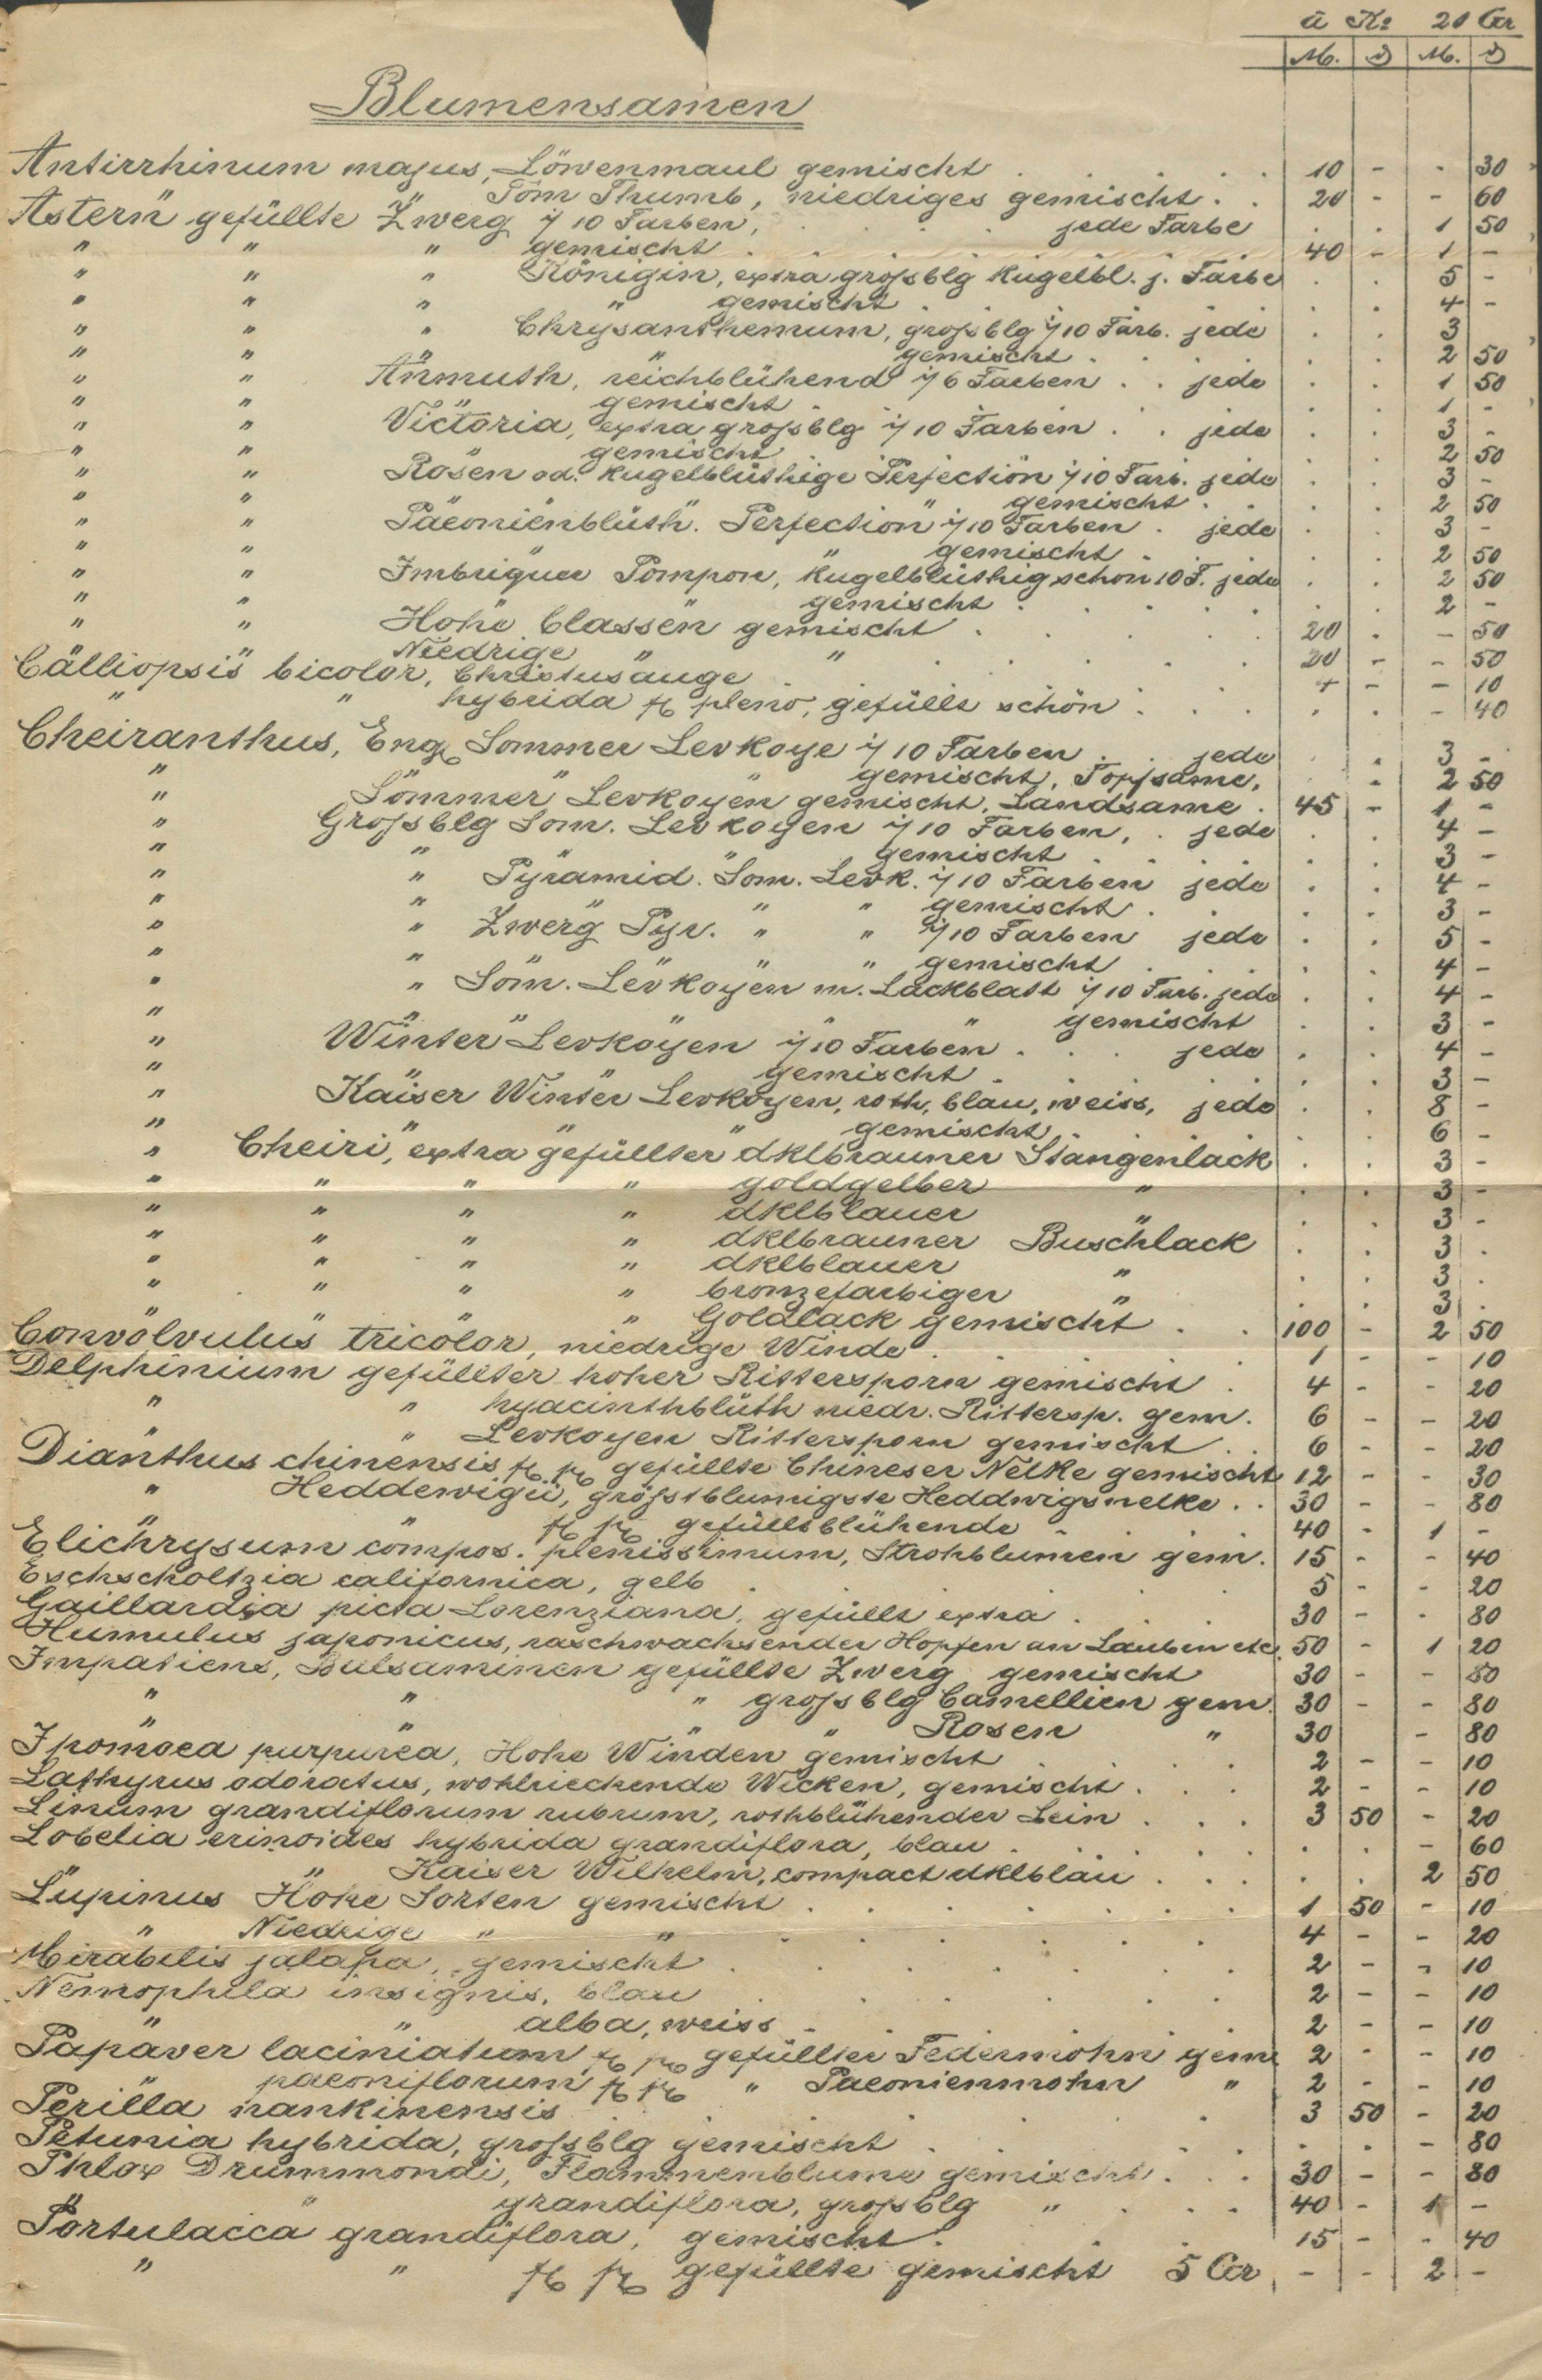 à Ko 20 Gr
M. ₰ M. ₰
Blumensamen
Antirrhinum majus, Löwenmaul gemischt . . . . 10 - - 30
" " Tom Thumb, niedriges gemischt . . 20 - - 60
Astern gefüllte Zwerg i/ 10 Farben, . . . jede Farbe . . 1 50
" " " gemischt . . . . . 40 - 1 -
" " " Königin, extra großblg Kugelbl. j. Farbe . . 5 -
" " " " gemischt . . . . . 4 -
" " " Chrysanthemum, großblg i/10 Farb. jede . . 3
" " " gemischt . . . . 2 50
" " Anmuth, reichblühend i/6 Farben . . jede . . 1 50
" " " gemischt . . . . 1 -
" " Victoria, extra großblg i/10 Farben . . jede . . 3 -
" " " gemischt . . . . 2 50
" " Rosen od. Kugelblüthige Perfection i/10 Farb. jede . . 3 -
" " " " gemischt . . . 2 50
" " Paeonienblüth. Perfection i/10 Farben . jede . . 3 -
" " " " gemischt . . . 2 50
" " Imbriquee Pompon, Kugelblüthig schön 10 F. jede . . 2 50
" " " gemischt . . . . 2 -
" " Hohe Classen gemischt . . . . 20 . - 50
" " Niedrige " " . . . . 20 - - 50
Calliopsis bicolor, Christusauge . . . . 4 - - 10
" " hybrida fl pleno, gefüllt schön . . . . . - 40
Cheiranthus, Engl Sommer Levkoye i/ 10 Farben . . jede . . 3 -
" " " " gemischt, Topfsame, . 2 50
" Sommer Levkoyen gemischt, Landsame . 45 - 1 -
" Großblg Som. Levkoyen i/10 Farben, . jede . . 4 -
" " " gemischt . . . . 3 -
" " Pyramid. Som. Levk. i/10 Farben jede . . 4 -
" " " " " gemischt . . . 3 -
" " Zwerg Pyr. " " i/10 Farben jede . . 5 -
" " " " " gemischt . . . 4 -
" " Som. Levkoyen m. Lackblatt i/10 Farb. jede . . 4 -
" " " " " gemischt . . 3 -
" Winter Levkoyen i/10 Farben . . . jede . . 4 -
" " " gemischt . . . 3 -
" Kaiser Winter Levkoyen, roth, blau, weiss, jede . . 8 -
" " " " gemischt . . . 6 -
" Cheiri, extra gefüllter dklbrauner Stangenlack . . 3 -
" " " " goldgelber " . . 3 -
" " " " dklblauer " . . 3 -
" " " " dklbrauner Buschlack . . 3 .
" " " " dklblauer " . . 3 .
" " " " bronzefarbiger " . . 3 .
" " " " Goldlack gemischt . . 100 - 2 50
Convolvulus tricolor, niedrige Winde . . . . 1 - - 10
Delphinium gefüllter hoher Rittersporn gemischt . 4 - - 20
" " hyacinthblüth niedr. Rittersp. gem. 6 - - 20
" " Levkoyen Rittersporn gemischt . . 6 - - 20
Dianthus chinensis fl pl gefüllte Chineser Nelke gemischt 12 - - 30
" Heddewigii, größtblumigste Heddwigsnelke . . 30 - - 80
" " fl pl gefülltblühende . . 40 - 1 -
Elichrysum compos. plenissimum, Strohblumen gem. 15 - - 40
Eschscholtzia californica, gelb . . . . 5 - - 20
Gaillardia picta Lorenziana, gefüllt extra . . . 30 - . 80
Humulus japonicus, raschwachsender Hopfen an Lauben etc. 50 - 1 20
Impatiens, Balsaminen gefüllte Zwerg gemischt 30 - - 80
" " " großblg Camellien gem. 30 - - 80
" " " " Rosen " 30 - 80
Ipomoea purpurea, Hohe Winden gemischt . . . 2 - - 10
Lathyrus odoratus, wohlriechende Wicken, gemischt . . . 2 - - 10
Linum grandiflorum rubrum, rothblühender Lein . . . 3 50 - 20
Lobelia erinoides hybrida grandiflora, blau . . . . - 60
" " Kaiser Wilhelm, compact dklblau . . . . . 2 50
Lupinus Hohe Sorten gemischt . . . . . . 1 50 - 10
" Niedrige " " . . . . . 4 - - 20
Mirabilis jalapa, gemischt . . . . . . 2 - - 10
Nemophila insignis, blau . . . . . . 2 - - 10
" " alba, weiss . . . . . 2 - - 10
Papaver laciniatum fl pl gefüllter Federmohn gem 2 - - 10
" paeoniflorum fl pl " Paeonienmohn " 2 - - 10
Perilla nankinensis . . . . . . 3 50 - 20
Petunia hybrida, großblg gemischt . . . . . . - 80
Phlox Drummondi, Flammenblume gemischt . . . 30 - - 80
" " grandiflora, großblg " . . . 40 - 1 -
Portulacca grandiflora, gemischt . . . 15 - - 40
" " fl pl gefüllte gemischt 5 Gr - - 2 -